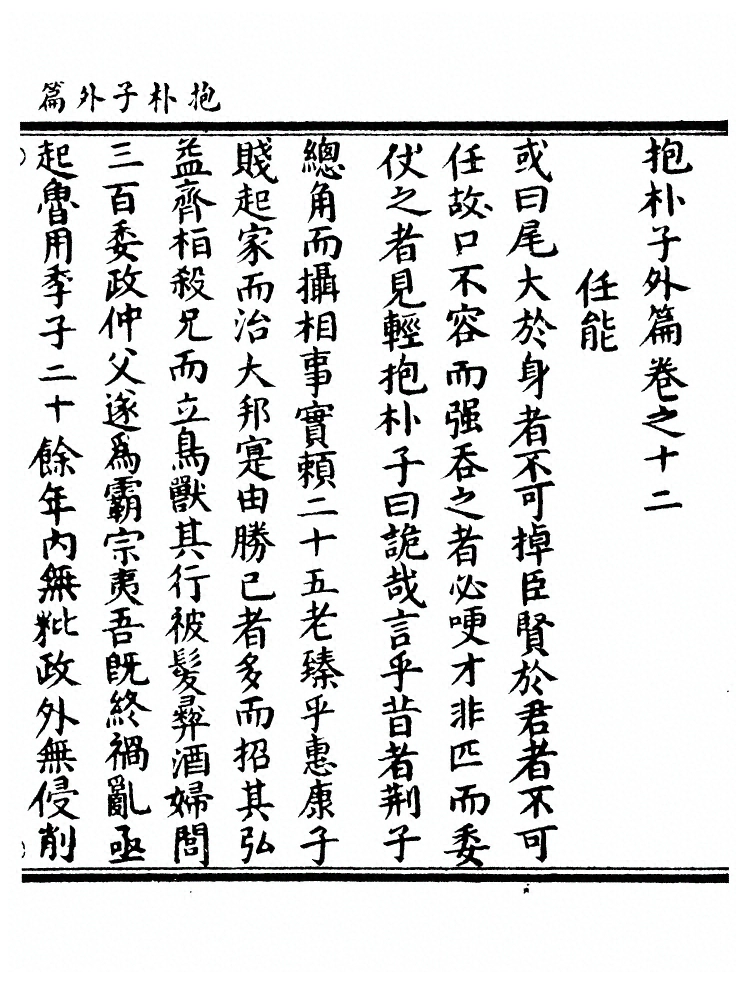 抱朴子外篇
抱朴子外篇卷之十二
任能
或曰尾大於身者不可掉臣賢於君者不可
任故口不容而强吞之者必哽才非匹而委
仗之者見輕抱朴子曰詭哉言乎昔者荆子
總角而攝相事實賴二十五老臻乎惠康子
賤起家而治大邦寔由勝己者多而招其弘
益齊桓殺兄而立鳥獸其行被髮彛酒婦閭
三百委政仲父遂爲霸宗夷吾既終禍亂亟
起魯用季子二十餘年内無粃政外無侵削